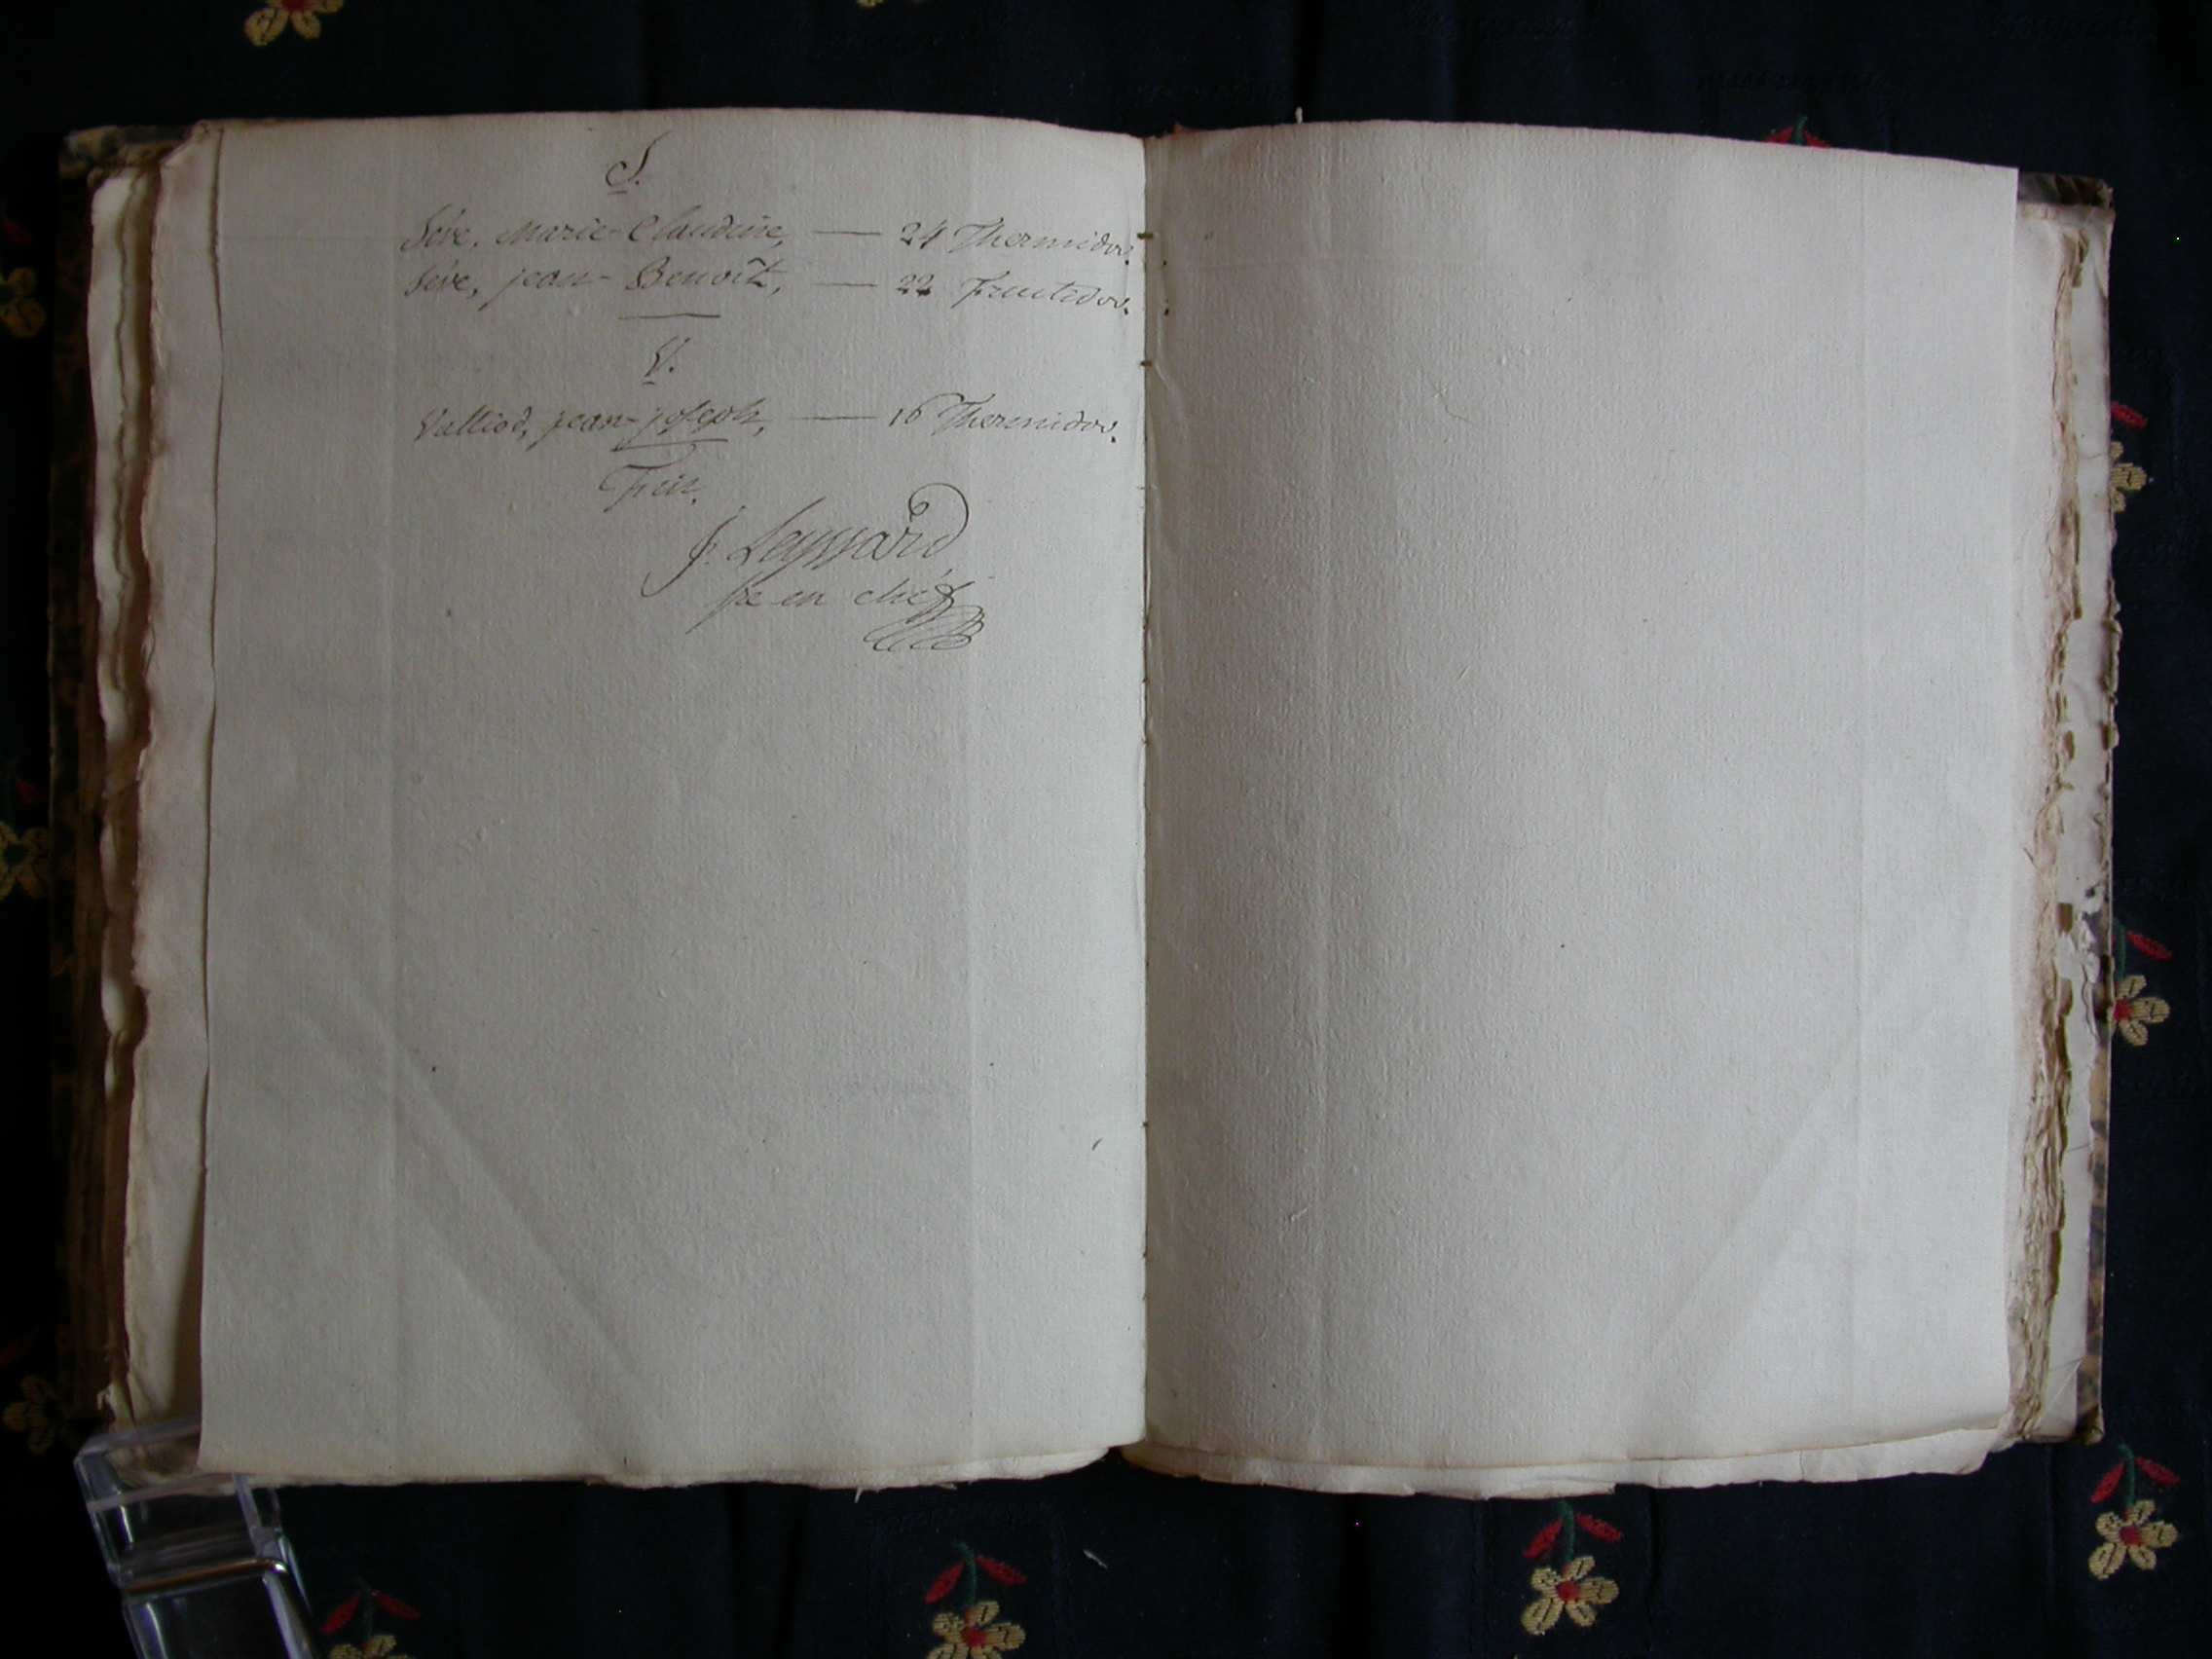 S.
Sève, Marie-Claudine, — 24 Thermidor.
Sève, jean-Benoît, — 22 Fructidor.
V.
Valliod, jean-joseph, — 16 Thermidor.
Fin.
J. Leyssard
en chef